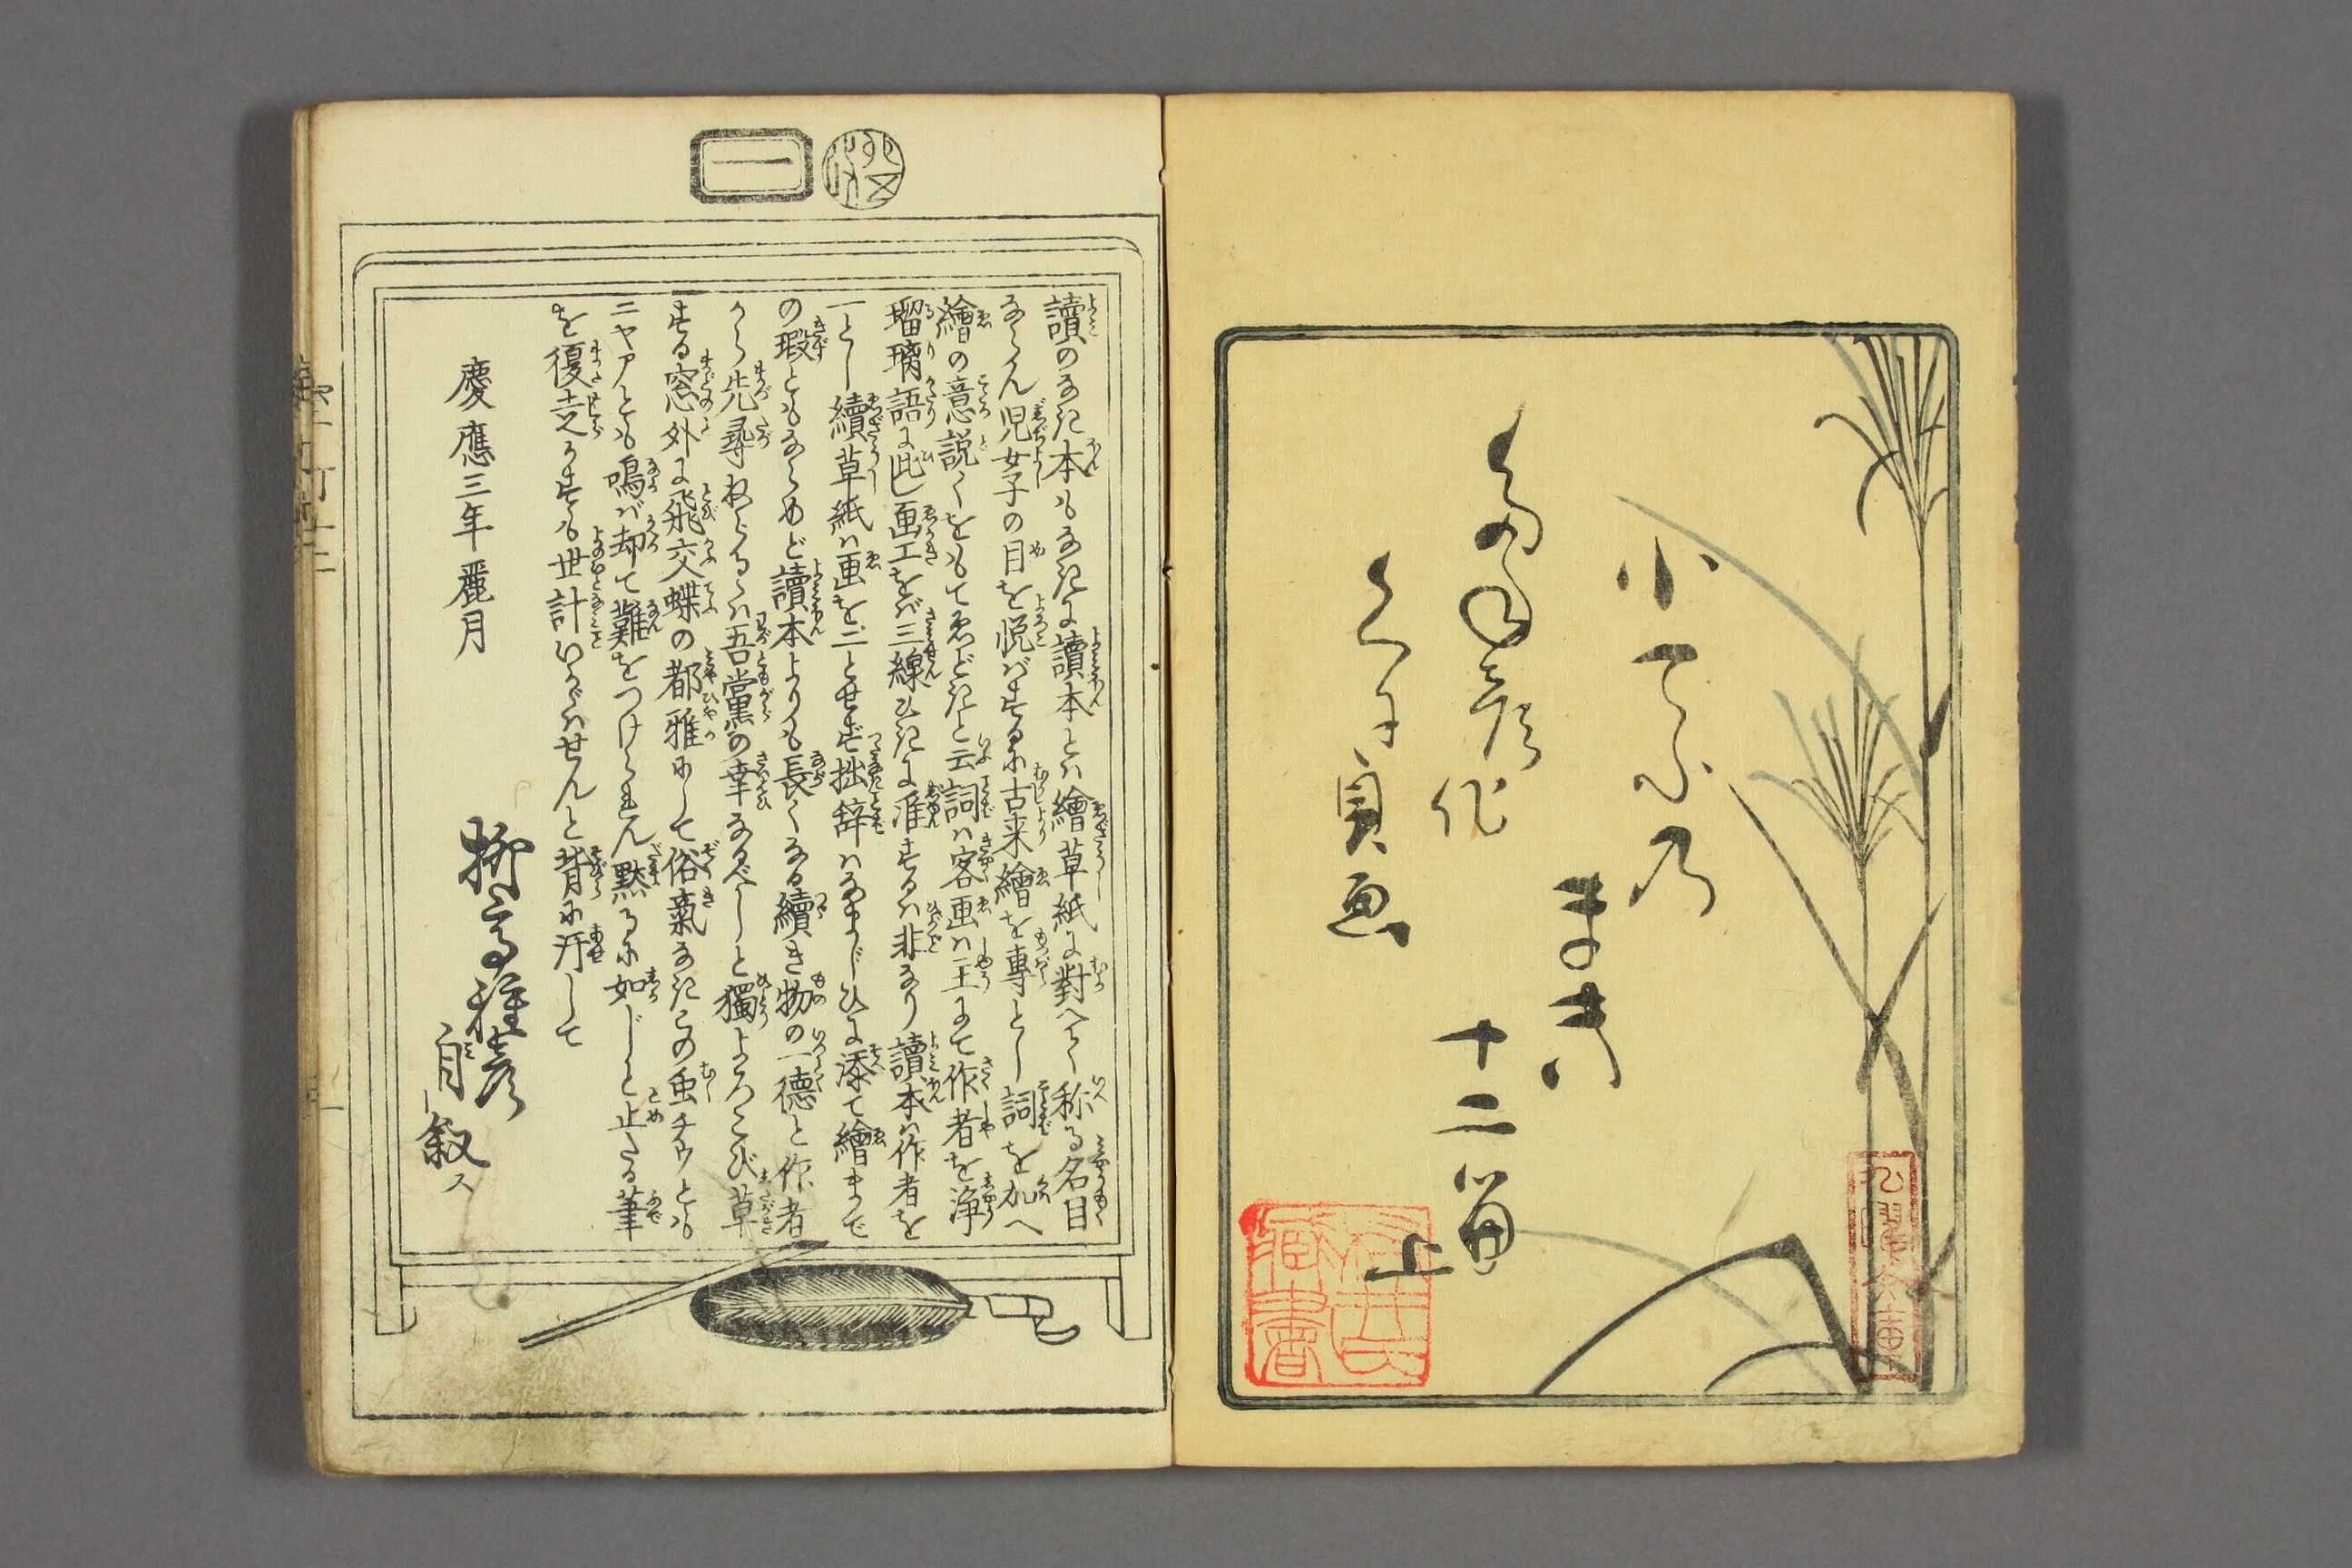 小てふ乃
まき
十二篇
上
たね彦作
くに貞画
藏書
改
一
讀のなき本もなきに讀本とハ繪草紙に對へて称る名目
ならん児女子の目を悦バするに古来繪を專とし詞を加へ
繪の意説くをもてゑどきと云詞ハ客画ハ主にて作者を浄
瑠璃語に比し画工をバ三線ひきに准するハ非なり讀本ハ作者を
一とし續草紙ハ画を二とせず拙辞ハなまじひに添て繪まで
の瑕ともならめど讀本よりも長くなる續き物の一德と作者
から先尋ねらるゝハ吾黨の幸なるべしと獨よろこび草
する窓外に飛交蝶の都雅にして俗氣なきこの虫チウとも
ニヤアとも鳴バ却て難をつけられん黙るに如じと止たる筆
を復走らすも世計いかゞハせんと背に汗して
慶應三年麗月
柳亭種彦
自叙ス